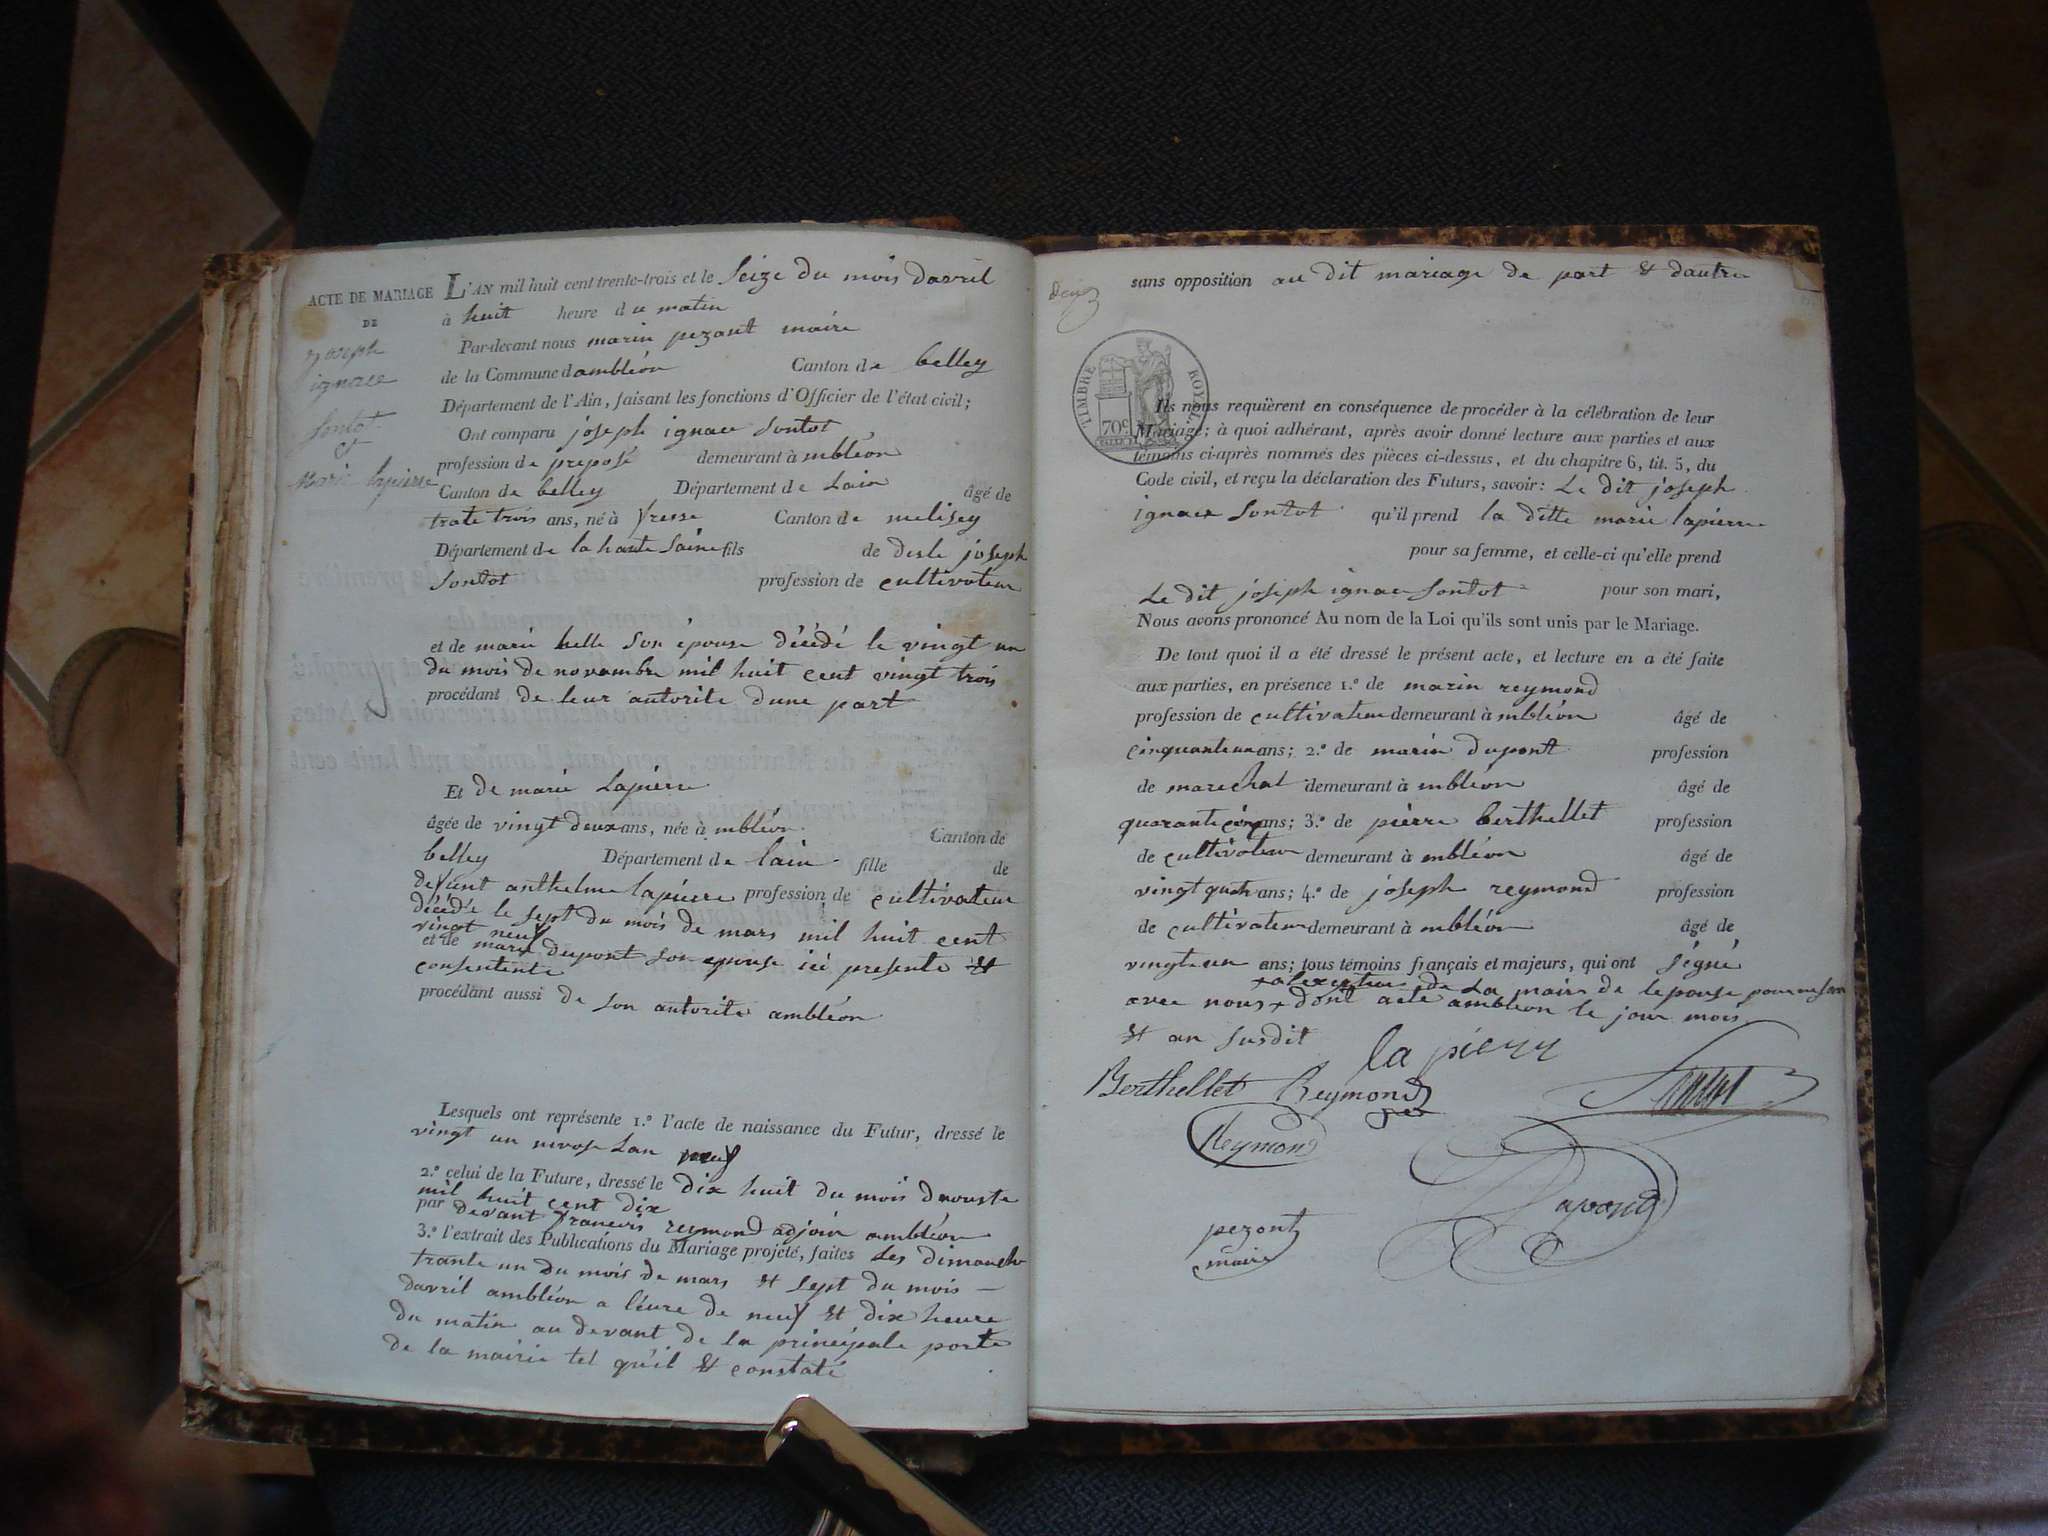 ACTE DE MARIAGE
DE
joseph
ignace
Sontot
et
Marie lapierre
L'AN mil huit cent trente-trois et le Seize du mois davril
à huit heure du matin
Par-devant nous marin pezant maire
de la Commune d ambléon Canton de belley
Département de l'Ain, faisant les fonctions d'Officier de l'état civil;
Ont comparu joseph ignace Sontot
profession de preposé demeurant à mbléon
Canton de belley Département de Lain âgé de
trate trois ans, né à fresse Canton de melisey
Département de la haute Saine fils de desle joseph
Sontot profession de cultivateur
et de marie belle Son épouse décédé le vingt un
du mois de novembre mil huit cent vingt trois
procédant de leur autorite dune part
Et de marie Lapierre
âgée de vingt deux ans, née à mbléon Canton de
belley Département de lain fille de
defunt anthelme lapierre profession de cultivateur
décédé le sept du mois de mars mil huit cent
vingt neuf
et de marie dupont son epouse ici presente et
consentente
procédant aussi de son autorite ambléon
Lesquels ont représente 1.º l'acte de naissance du Futur, dressé le
vingt un nivose Lan neuf
2.º celui de la Future, dressé le dix huit du mois daouste
mil huit cent dix
par devant francois reymond adjoin ambléon
3.º l'extrait des Publications du Mariage projeté, faites des dimanche
trante un du mois de mars et sept du mois
davril ambléon a léure de neuf et dix heure
du matin au devant de la principale porte
de la mairie tel qu'il et constaté
sans opposition au dit mariage de part et dautre
TIMBRE ROYAL
70 c
Ils nous requièrent en conséquence de procéder à la célébration de leur
Mariage; à quoi adhérant, après avoir donné lecture aux parties et aux
témoins ci-après nommés des pièces ci-dessus, et du chapitre 6, tit. 5, du
Code civil, et reçu la déclaration des Futurs, savoir: Le dit joseph
ignace Sontot qu'il prend la ditte marie lapierre
pour sa femme, et celle-ci qu'elle prend
Le dit joseph ignace Sontot pour son mari,
Nous avons prononcé Au nom de la Loi qu'ils sont unis par le Mariage.
De tout quoi il a été dressé le présent acte, et lecture en a été faite
aux parties, en présence 1.º de marin reymond
profession de cultivateur demeurant à mbléon âgé de
cinquante un ans; 2.º de marin dupont profession
de marechal demeurant à mbléon âgé de
quarante cinq ans; 3.º de pierre berthellet profession
de cultivateur demeurant à mbléon âgé de
vingt quatr ans; 4.º de joseph reymond profession
de cultivateur demeurant à mbléon âgé de
vingt un ans; tous témoins français et majeurs, qui ont signé
de La maire de lepouse
avec nous dont acte ambléon le jour mois
et an susdit
la pierr
Berthellet Reymond
Reymond
Dupond
pezant
maire